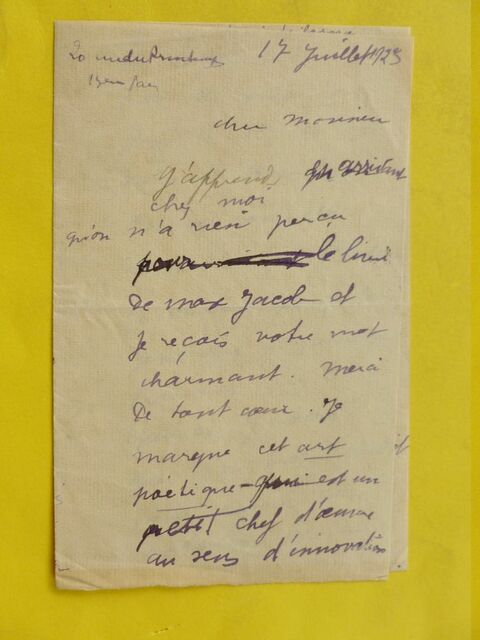 17 Juillet 1923
20 rue du Printemps
cher monsieur
J'apprends en arrivant
chez moi
qu'on n'a rien perçu
pour le livre
de max Jacob et
je reçois votre mot
charmant. Merci
De tout cœur. Je
marque cet art
poëtique - qui est un
petit chef d'œuvre
au sens d'innovation